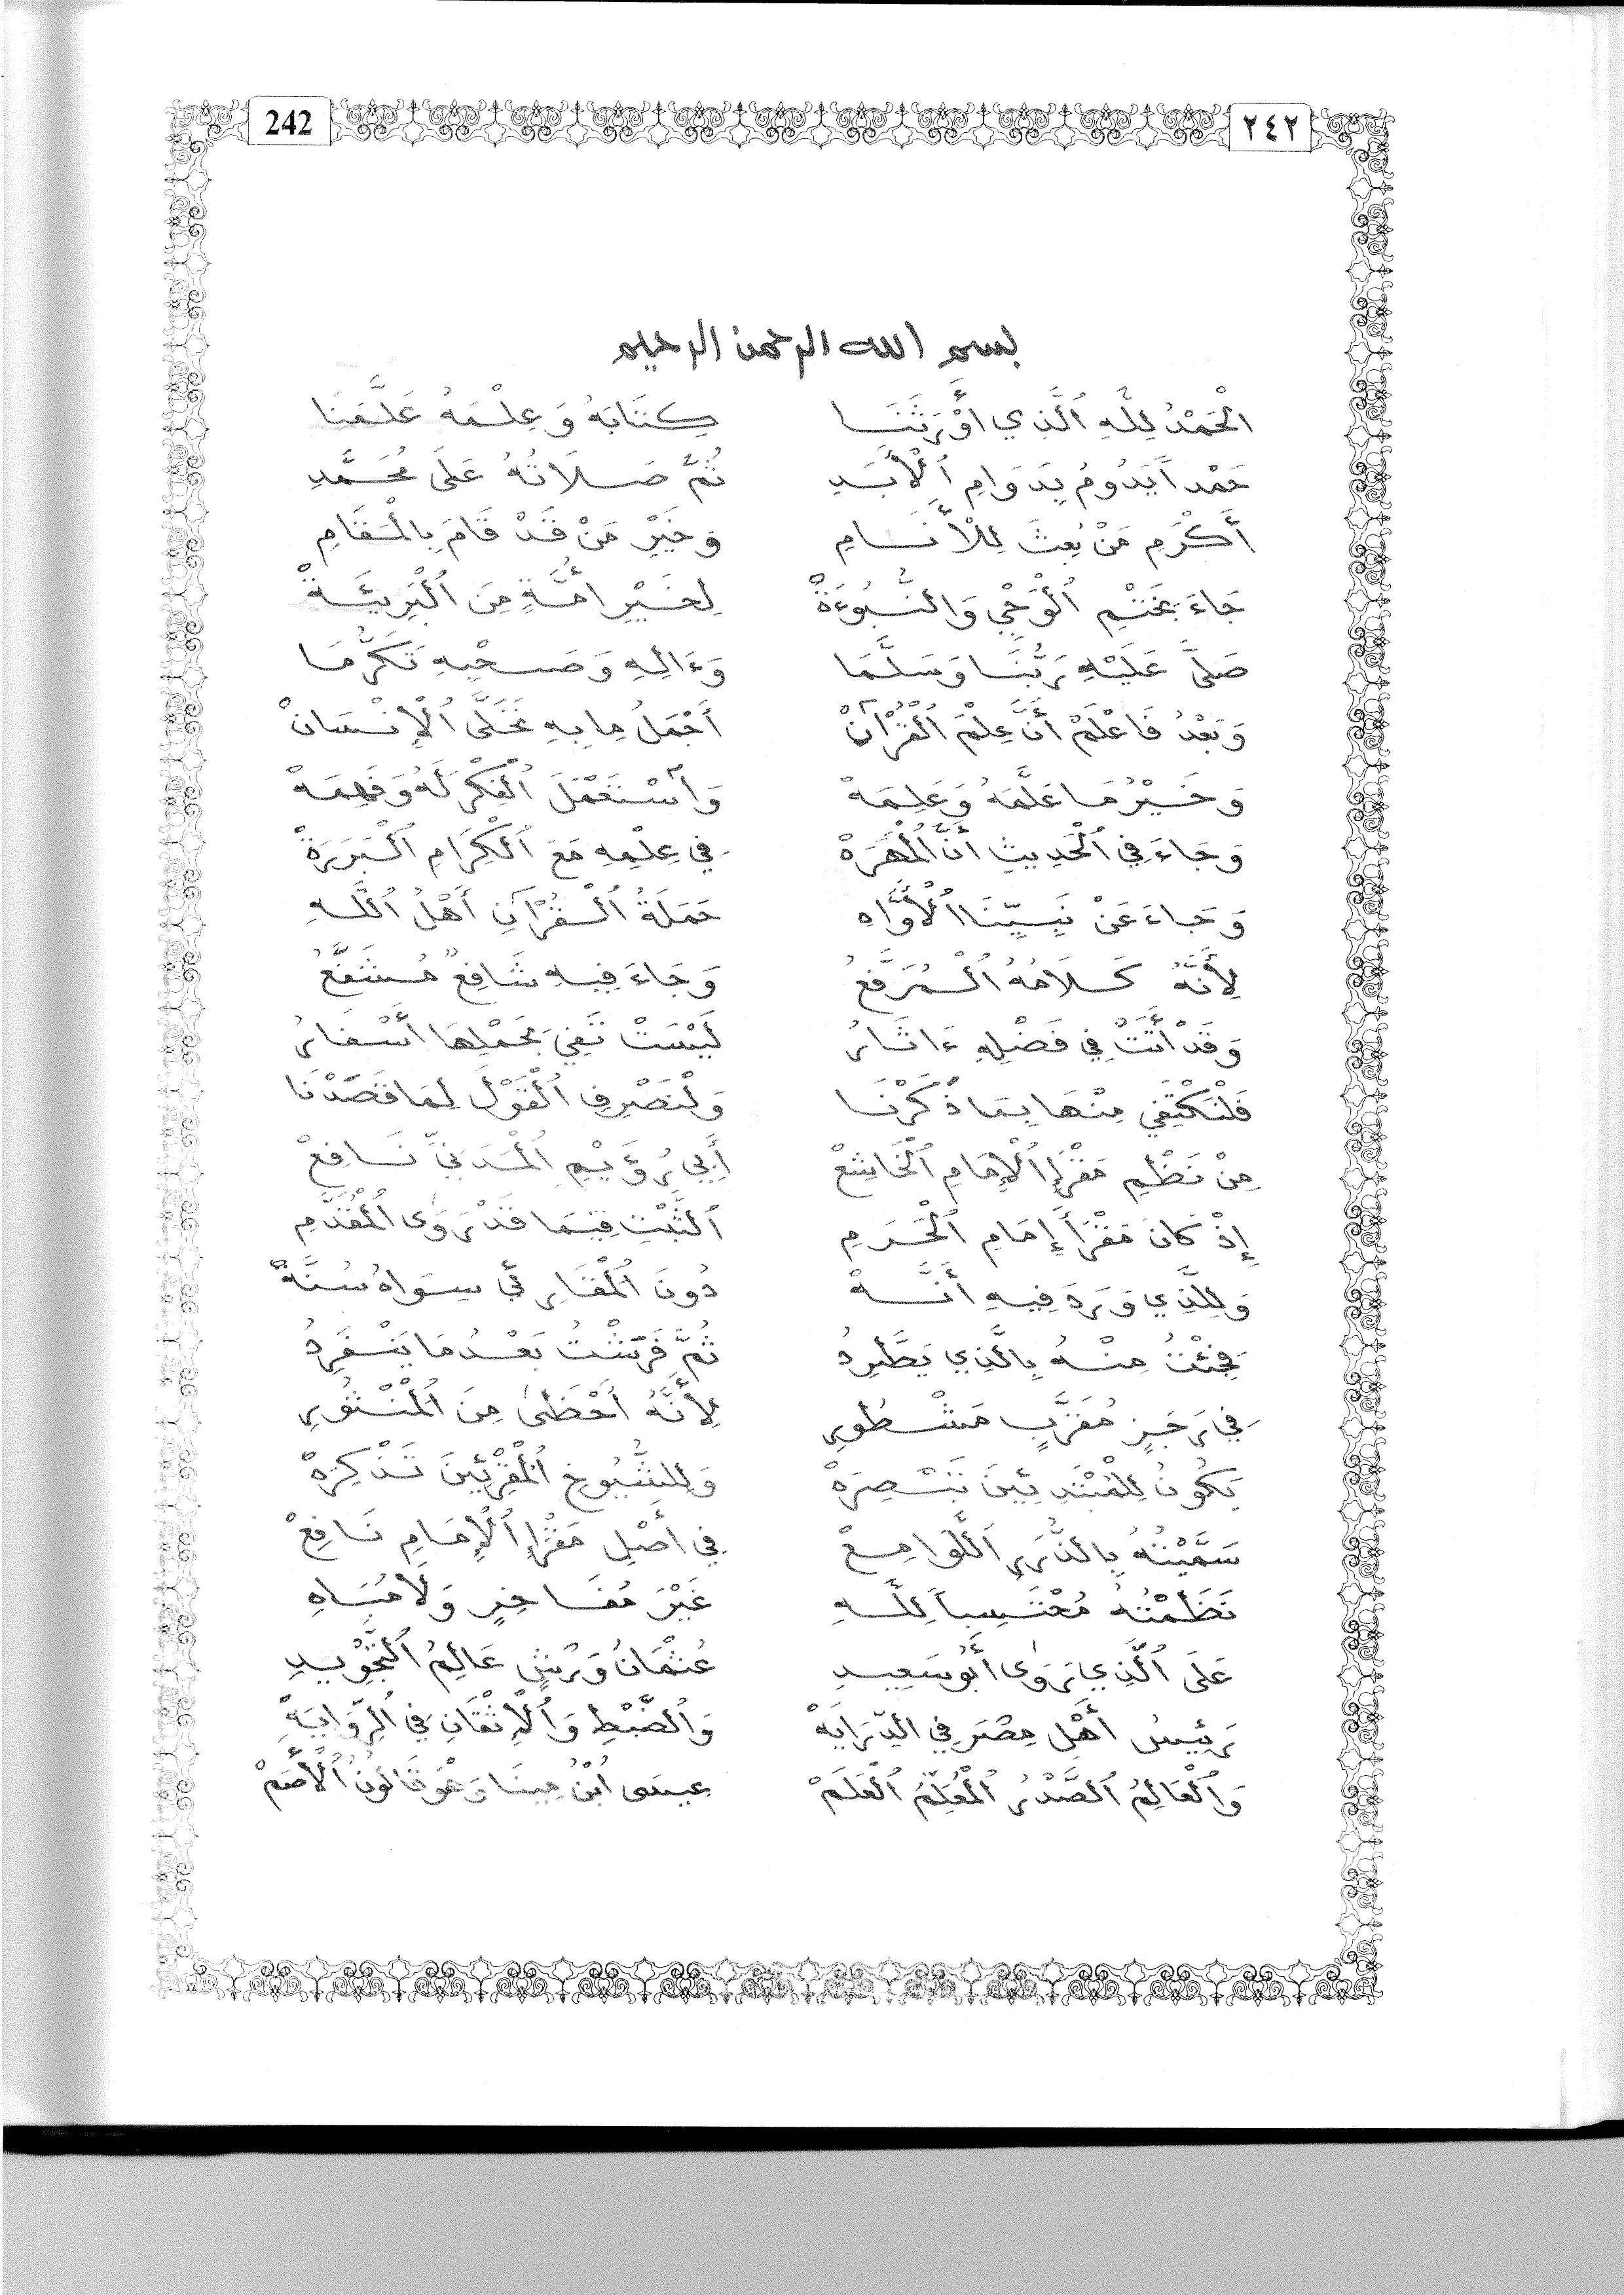 242
٢٤٢
بسم الله الرحمن الرحيم
الْحَمْدُ لِلَّهِ الَّذِي أَوْرَثَنَا كِتَابَهُ وَعِلْمَهُ عَلَّمَنَا
حَمْداً يَدُومُ بِدَوَامِ الْأَبَدِ ثُمَّ صَلَاتُهُ عَلَى مُحَمَّدِ
أَكْرَمِ مَنْ بُعِثَ لِلْأَنَامِ وَخَيْرِ مَنْ قَدْ قَامَ بِالْمَقَامِ
جَاءَ بِخَتْمِ الْوَحْيِ وَالنُّبُوءَةْ لِخَيْرِ أُمَّةٍ مِنَ الْبَرِيَّئَةْ
صَلَّى عَلَيْهِ رَبُّنَا وَسَلَّمَا وَءَالِهِ وَصَحْبِهِ تَكَرُّمَا
وَبَعْدُ فَاعْلَمْ أَنَّ عِلْمَ الْقُرْآنْ أَجْمَلُ مَا بِهِ تَحَلَّى الْإِنْسَانْ
وَخَيْرُ مَا عَلَّمَهُ وَعَلِمَهْ وَاسْتَعْمَلَ الْفِكْرَ لَهُ وَفَهِمَهْ
وَجَاءَ فِي الْحَدِيثِ أَنَّ الْمَهَرَهْ فِي عِلْمِهِ مَعَ الْكِرَامِ الْبَرَرَةْ
وَجَاءَ عَنْ نَبِيِّنَا الْأَوَّاهِ حَمَلَةُ الْقُرْآنِ أَهْلُ اللَّهِ
لِأَنَّهُ كَلَامُهُ الْمُرَفَّعُ وَجَاءَ فِيهِ شَافِعٌ مُشَفَّعُ
وَقَدْ أَتَتْ فِي فَضْلِهِ ءَاثَارُ لَيْسَتْ تَفِي بِحَمْلِهَا أَسْفَارُ
فَلْنَكْتَفِي مِنْهَا بِمَا ذَكَرْنَا وَلْنَصْرِفِ الْقَوْلَ لِمَا قَصَدْنَا
مِنْ نَظْمِ مَقْرَإِ الْإِمَامِ الْخَاشِعْ أَبِي رُؤَيْمِ الْمَدَنِيِّ نَافِعْ
إِذْ كَانَ مَقْرَأَ إِمَامِ الْحَرَمِ الثَّبْتِ فِيمَا قَدْ رَوَى الْمُقَدَّمِ
وَلِلَّذِي وَرَدَ فِيهِ أَنَّهْ دُونَ الْمَقَارِئِ سِوَاهُ سُنَّةْ
فَجِئْتُ مِنْهُ بِالَّذِي يَطَّرِدُ ثُمَّ فَرَشْتُ بَعْدُ مَا يَنْفَرِدُ
فِي رَجَزٍ مُقَرَّبٍ مَشْطُورِ لِأَنَّهُ أَحْظَى مِنَ الْمَنْثُورِ
يَكُونُ لِلْمُبْتَدِئِينَ تَبْصِرَهْ وَلِلشُّيُوخِ الْمُقْرِئِينَ تَذْكِرَهْ
سَمَّيْتُهُ بِالدُّرَرِ اللَّوَامِعْ فِي أَصْلِ مَقْرَإِ الْإِمَامِ نَافِعْ
نَظَمْتُهُ مُحْتَسِباً لِلَّهِ غَيْرَ مُفَاخِرٍ وَلَا مُبَاهِ
عَلَى الَّذِي رَوَى أَبُو سَعِيدِ عُثْمَانُ وَرْشٌ عَالِمُ التَّجْوِيدِ
رَئِيسُ أَهْلِ مِصْرَ فِي الدِّرَايَهْ وَالضَّبْطِ وَالْإِتْقَانِ فِي الرِّوَايَةْ
وَالْعَالِمُ الصَّدْرُ الْمُعَلِّمُ الْعَلَمْ عِيسَى ابْنُ مِينَا وَهْوَ قَالُونُ الْأَصَمْ